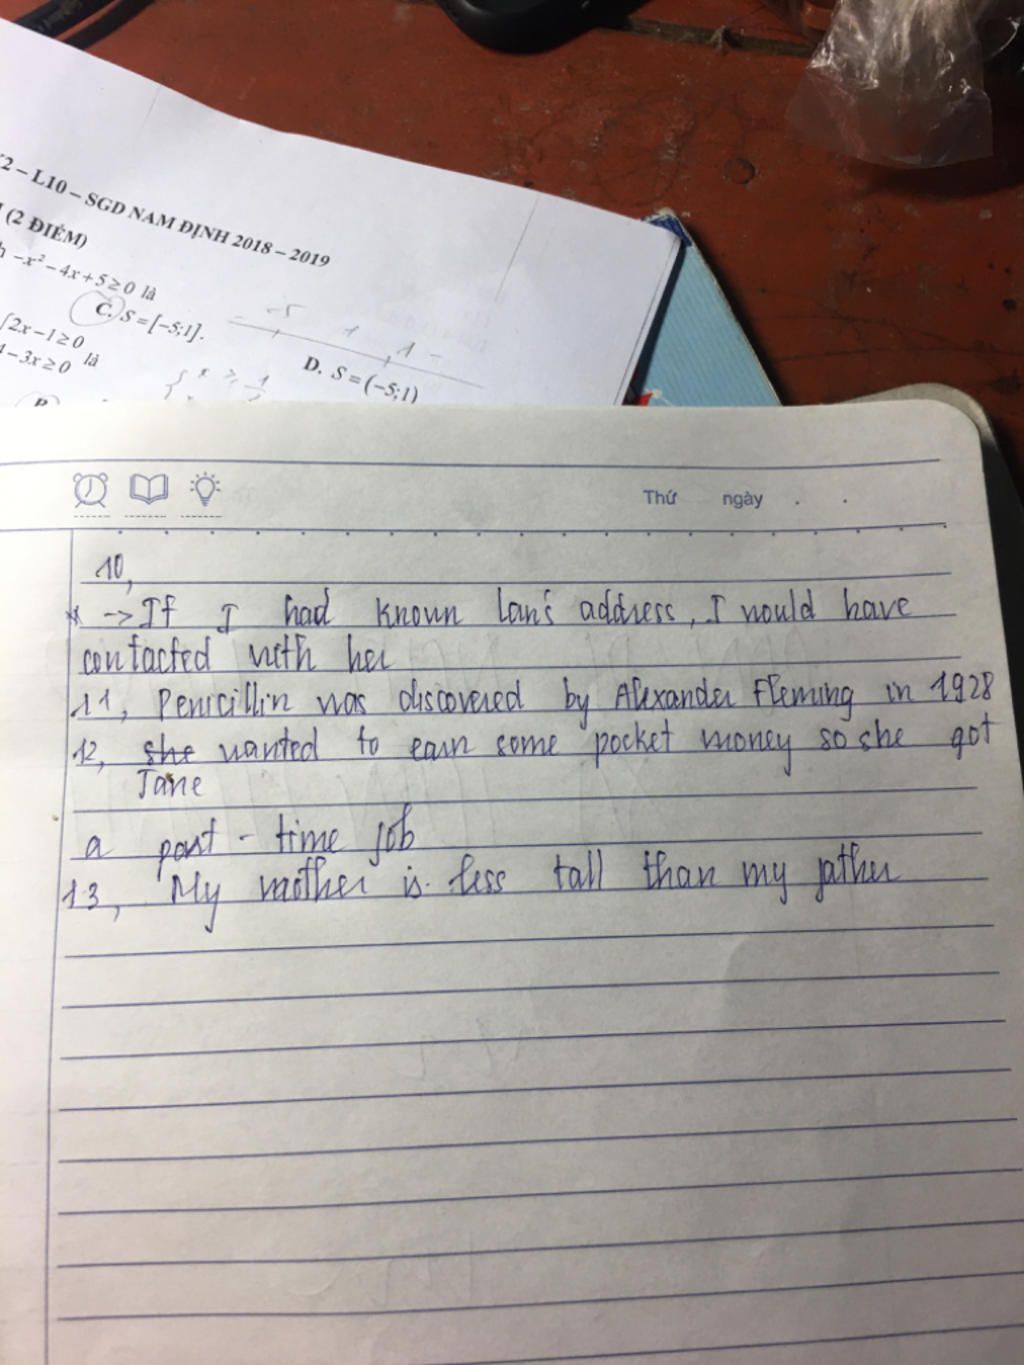 2 – L10 – SGD NAM ĐỊNH 2018 – 2019
(2 ĐIỂM)
-x² - 4x + 5 ≥ 0 là
C. S = [-5;1].
-5 1
2x - 1 ≥ 0
- 3x ≥ 0 là
D. S = (-5;1)
Thứ ngày . .
10,
* -> If I had known Lan's address, I would have
contacted with her
11, Penicillin was discovered by Alexander Fleming in 1928
12, she wanted to earn some pocket money so she got
Jane
a part - time job
13, My mother is less tall than my father